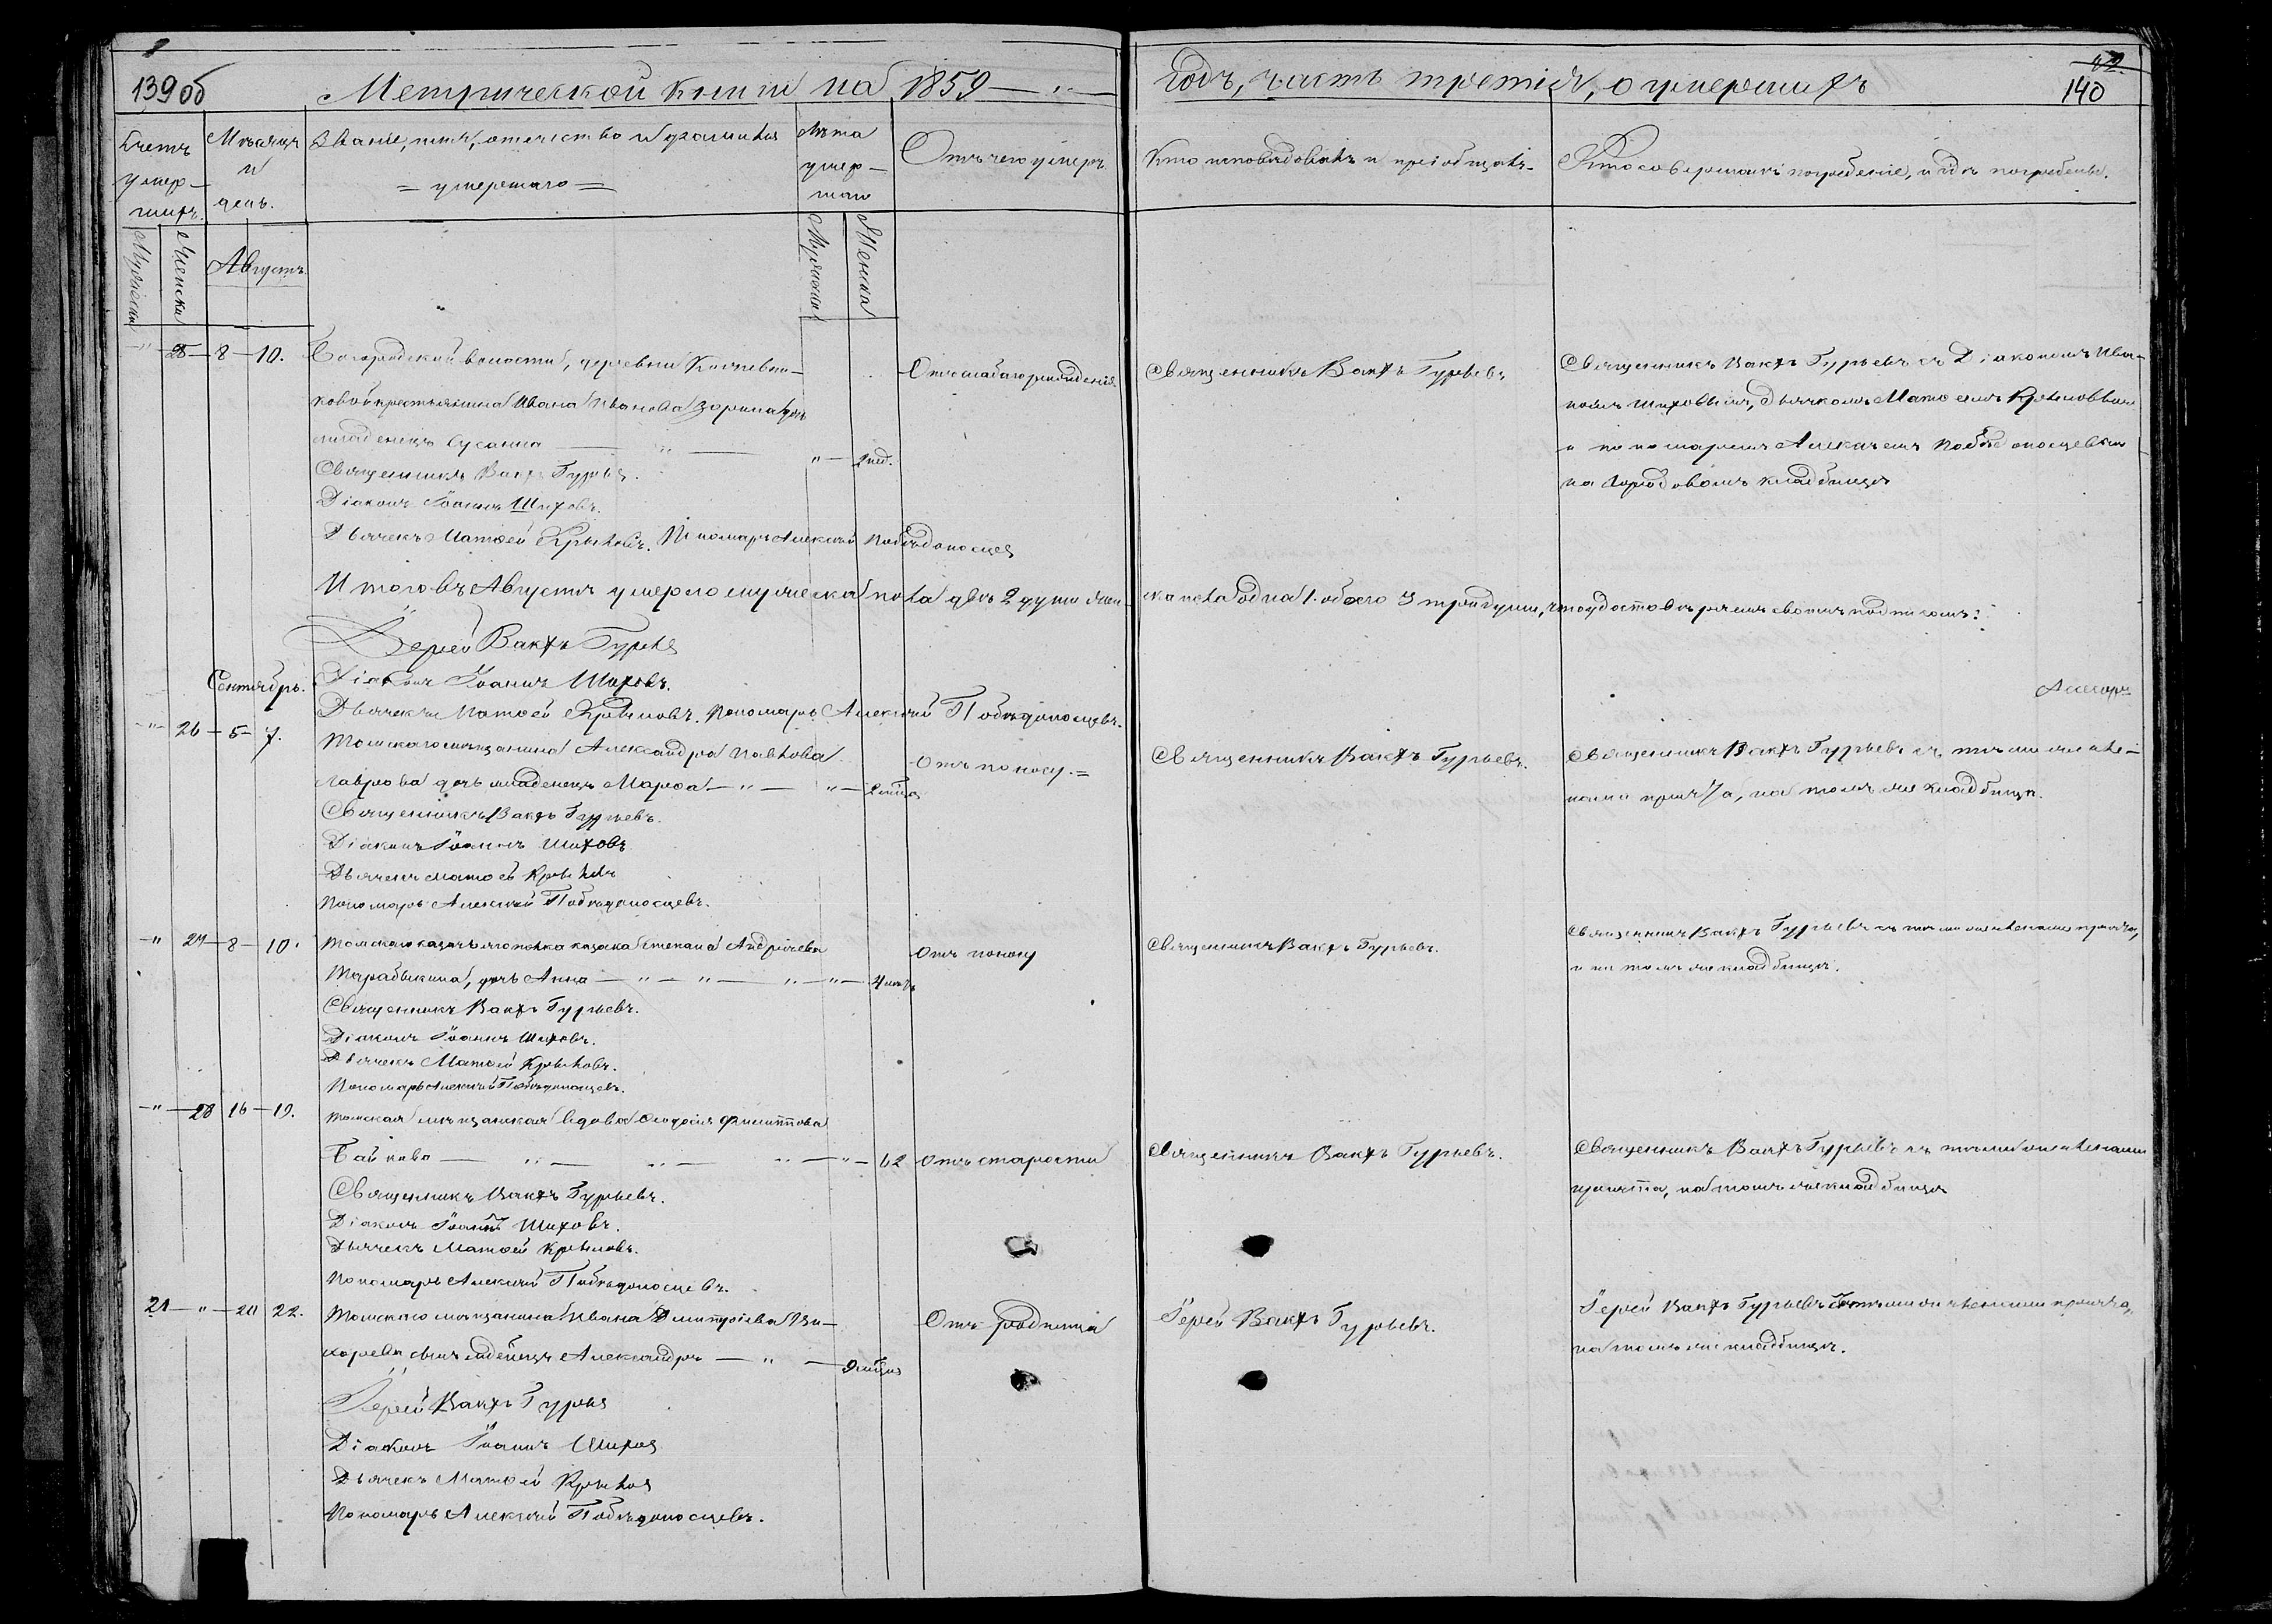 139об
Метрической книги на 1859
годъ, часть третія, о умершихъ
42.
140
Счетъ умер-шихъ.
Мѣсяцъ и день.
Званіе, имя, отечество и фамилія
= умершаго =
Лѣта умер-шаго
Отъ чего умеръ
Кто исповѣдовалъ и пріобщалъ.
Кто совершалъ погребеніе, и гдѣ погребены.
Мужеска
Женска
Августъ
Мужеска
Женска
" 25 8 10. Богородской волости, деревни
ковой крестьянина Ивана Иванова Зорина дочь
младенецъ Сусанна " " 2 нед.
Отъ слабаго рожденія
Священникъ Вакхъ Гурьевъ
Священникъ Вакхъ Гурьевъ съ Діакономъ Іоан-
номъ Шиховымъ, дьячкомъ Матѳеемъ Крыловымъ
и пономаремъ Алексѣемъ Побѣдоносцевымъ
на городовомъ кладбищѣ
Священникъ Вакхъ Гурьев
Діаконъ Іоаннъ Шиховъ.
Дьячекъ Матѳей Крыловъ. Пономарь Алексѣй Побѣдоносцев
Итого въ Августѣ умерло мужеска пола двѣ 2 души жен-
ска пола одна 1. обоего 3 три души, что удостовѣряемъ своимъ подписомъ:
Іерей Вакхъ Гурьев
Діаконъ Іоаннъ Шиховъ.
Дьячекъ Матѳей Крыловъ. Пономарь Алексѣй Побѣдоносцевъ.
Сентябрь.
" 26 5 7. Томскаго мѣщанина Александра Павлова
Лаврова дочь младенецъ Марѳа " "
Отъ поносу. =
Священникъ Вакхъ Гурьевъ.
Священникъ Вакхъ Гурьевъ съ тѣми же чле-
нами причта, на томъ же кладбищѣ.
Священникъ Вакхъ Гурьевъ.
Діаконъ Іоаннъ Шиховъ
Дьячекъ Матѳей Крыловъ
Пономарь Алексѣй Побѣдоносцевъ.
" 27 8 10. Томскаго казачьяго полка казака Степана Андреева
дочь Анна " " " " 4
Отъ поносу
Священникъ Вакхъ Гурьевъ.
Священникъ Вакхъ Гурьевъ съ тѣми же членами причта,
и на томъ же кладбищѣ.
Священникъ Вакхъ Гурьевъ.
Діаконъ Іоаннъ Шиховъ.
Дьячекъ Матѳей Крыловъ.
Пономарь Алексѣй Побѣдоносцевъ.
" 28 16 19. Томская мѣщанская вдова Ѳеодосія Филиппова
" " " " 62
Отъ старости
Священникъ Вакхъ Гурьевъ.
Священникъ Вакхъ Гурьевъ съ тѣми же членами
причта, на томъ же кладбищѣ
Священникъ Вакхъ Гурьевъ.
Діаконъ Іоаннъ Шиховъ.
Дьячекъ Матѳей Крыловъ.
Пономарь Алексѣй Побѣдоносцевъ.
21 " 20 22. Томскаго мѣщанина Ивана Димитріева
сынъ младенецъ Александръ "
Отъ родимца
Іерей Вакхъ Гурьевъ.
Іерей Вакхъ Гурьевъ съ тѣми же членами причта,
на томъ же кладбищѣ.
Іерей Вакхъ Гурьев
Діаконъ Іоаннъ Шихов
Дьячекъ Матѳей Крылов
Пономарь Алексѣй Побѣдоносцевъ.